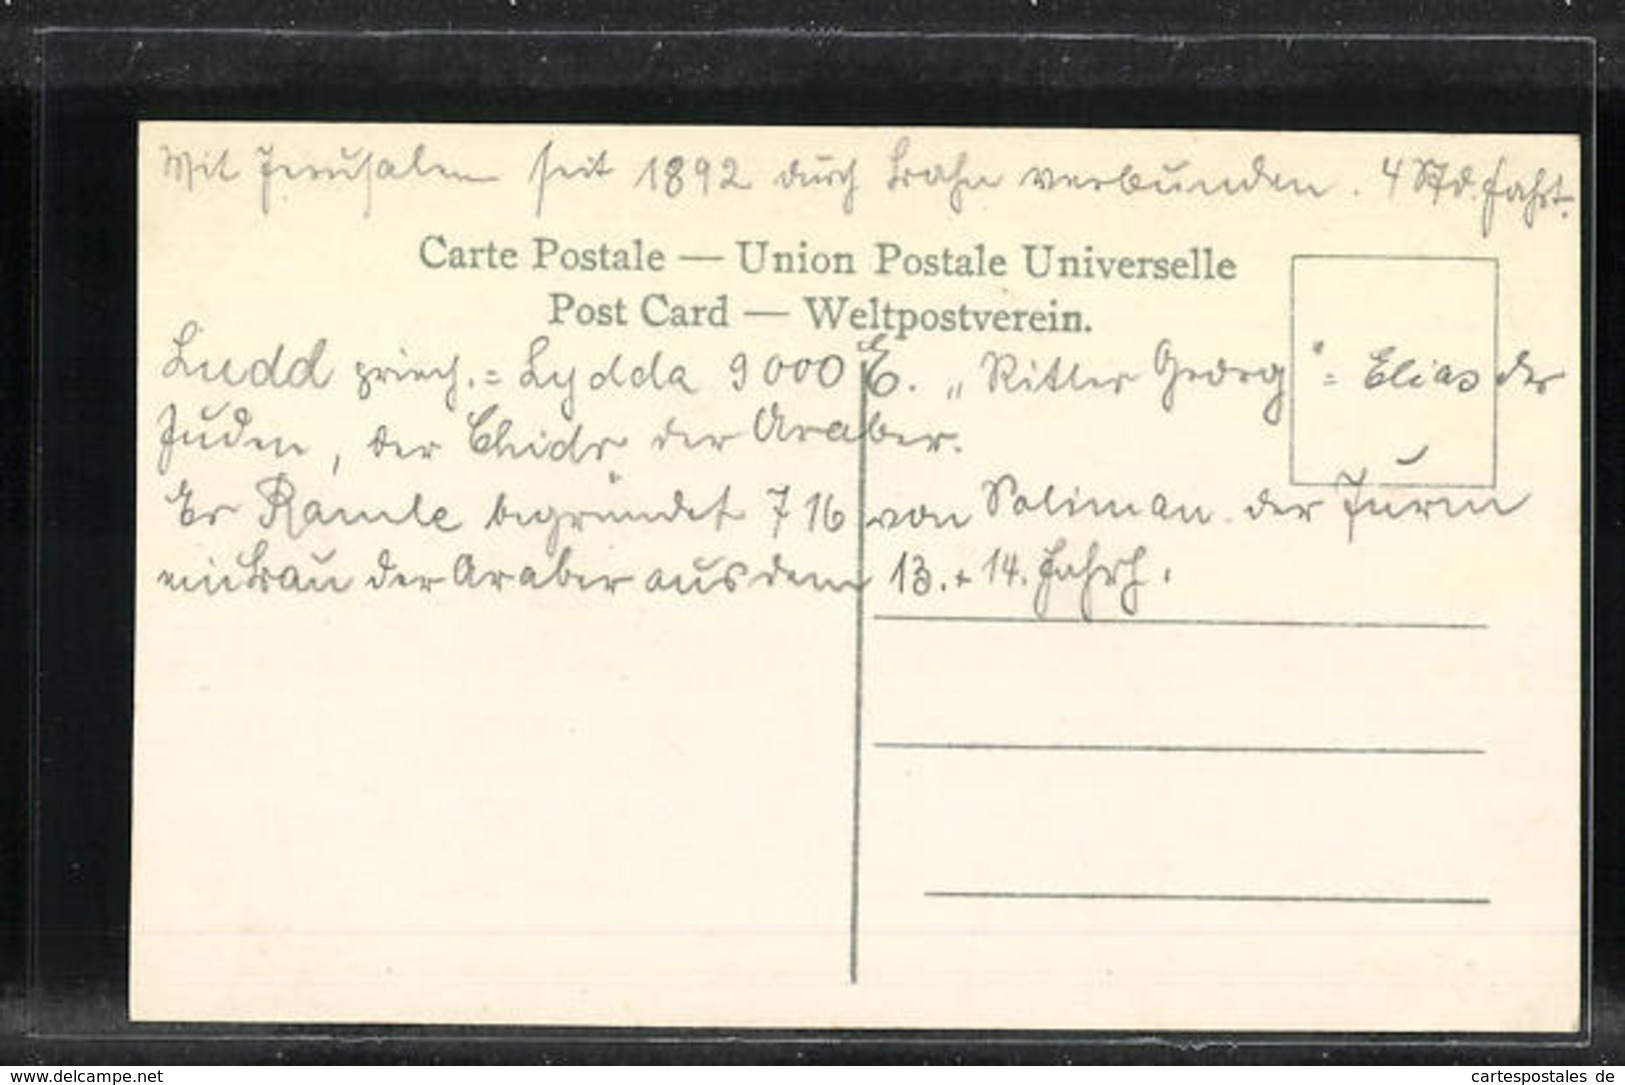 Mit Jerusalem seit 1892 durch Bahn verbunden. 4 Std. Fahrt.
Carte Postale — Union Postale Universelle
Post Card — Weltpostverein.
Ludd griech. = Lydda 9000 E. „Ritter Georg" = Elias der
Juden, der Chidr der Araber.
Er Ramle begründet 716 von Soliman der Turm
ein Bau der Araber aus dem 13. + 14. Jahrh.
www.delcampe.net
cartespostales de